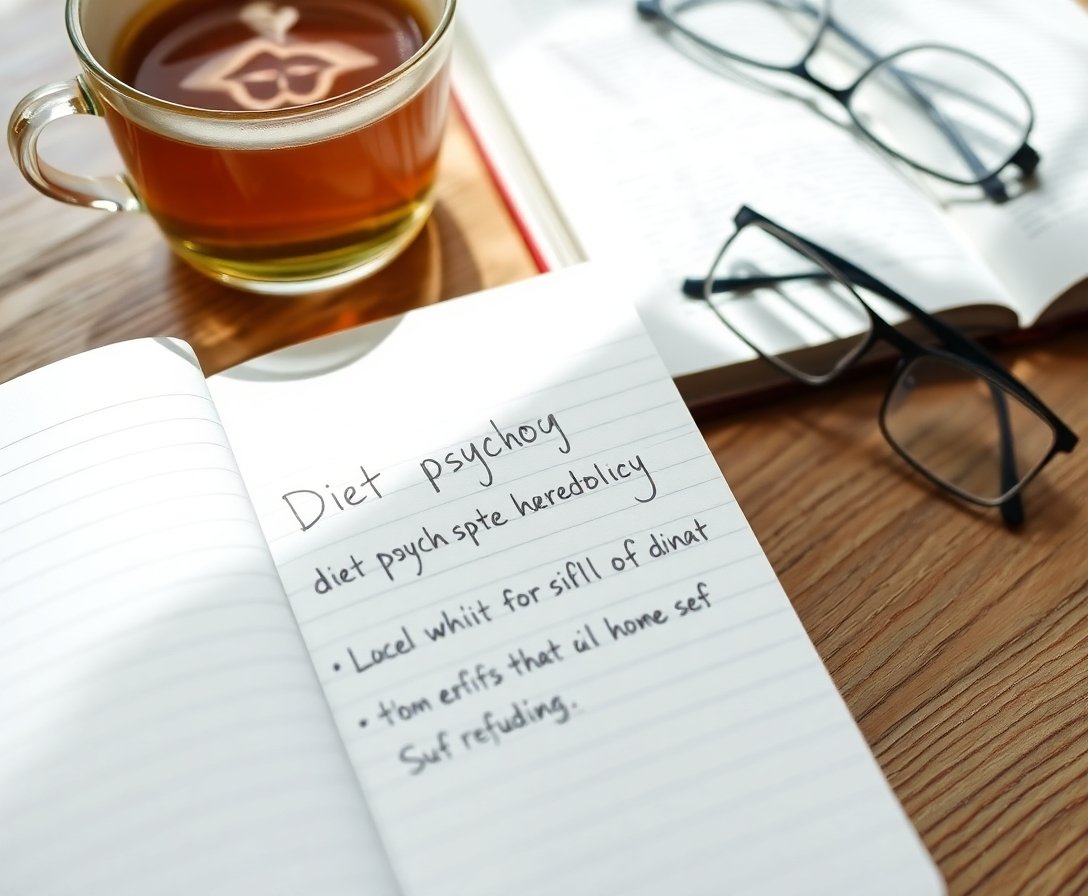 Diet psychoy
diet psych spte heredolicy
• Locel whiit for sifll of dinat
• thom erfifs that uil home sef
Suf refuding.